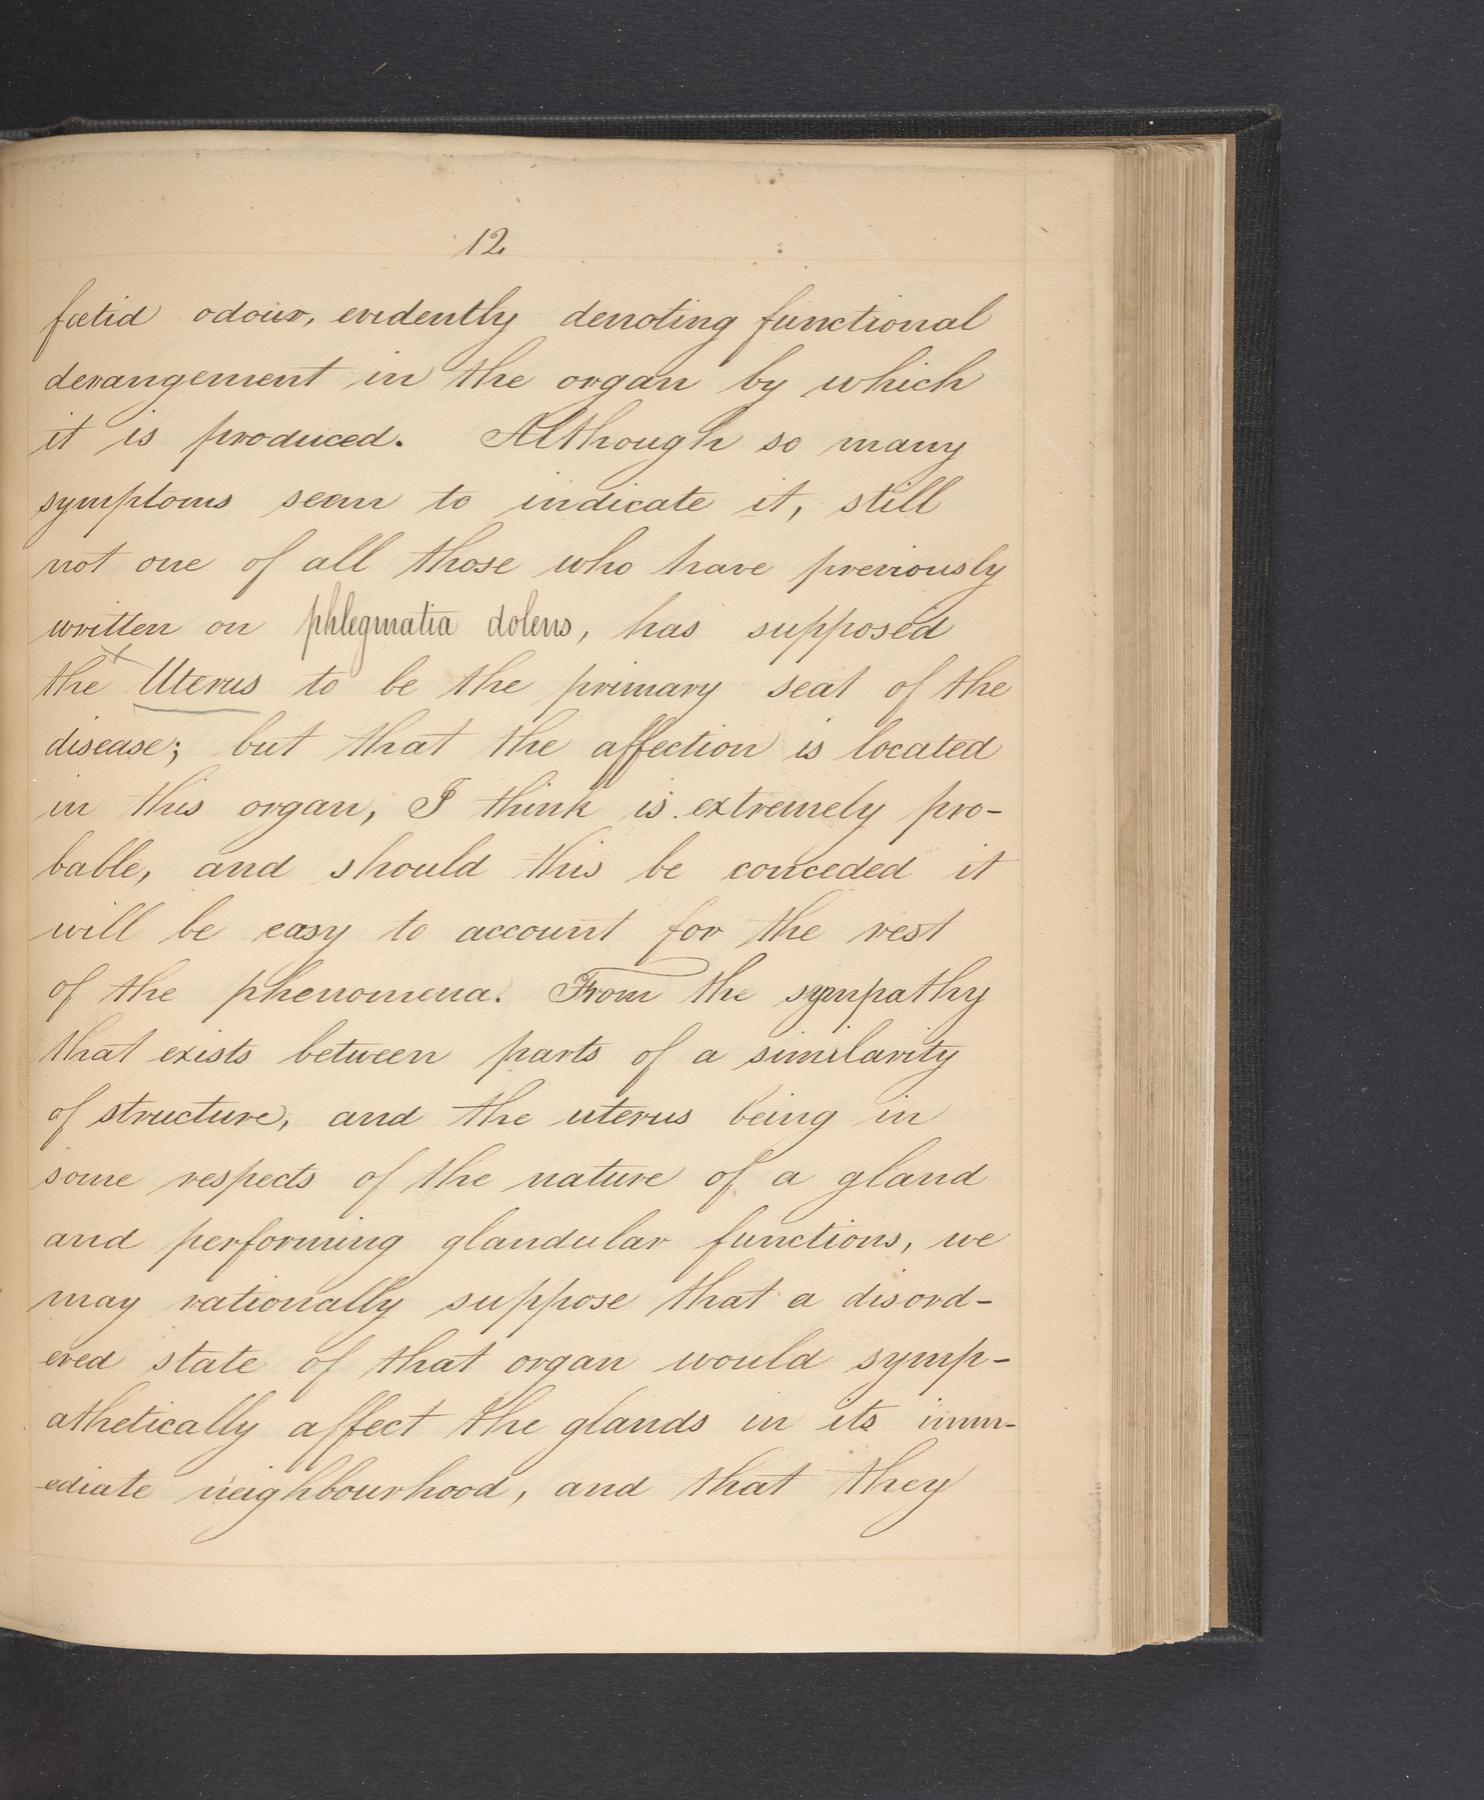 12
fœtid odour, evidently denoting functional
derangement in the organ by which
it is produced. Although so many
symptoms seem to indicate it, still
not one of all those who have previously
written on phlegmatia dolens, has supposed
the Uterus to be the primary seat of the
disease; but that the affection is located
in this organ, I think is extremely pro-
bable, and should this be conceded it
will be easy to account for the rest
of the phenomena. From the sympathy
that exists between parts of a similarity
of structure, and the uterus being in
some respects of the nature of a gland
and performing glandular functions, we
may rationally suppose that a disord-
ered state of that organ would symp-
athetically affect the glands in its imm-
ediate neighbourhood, and that they